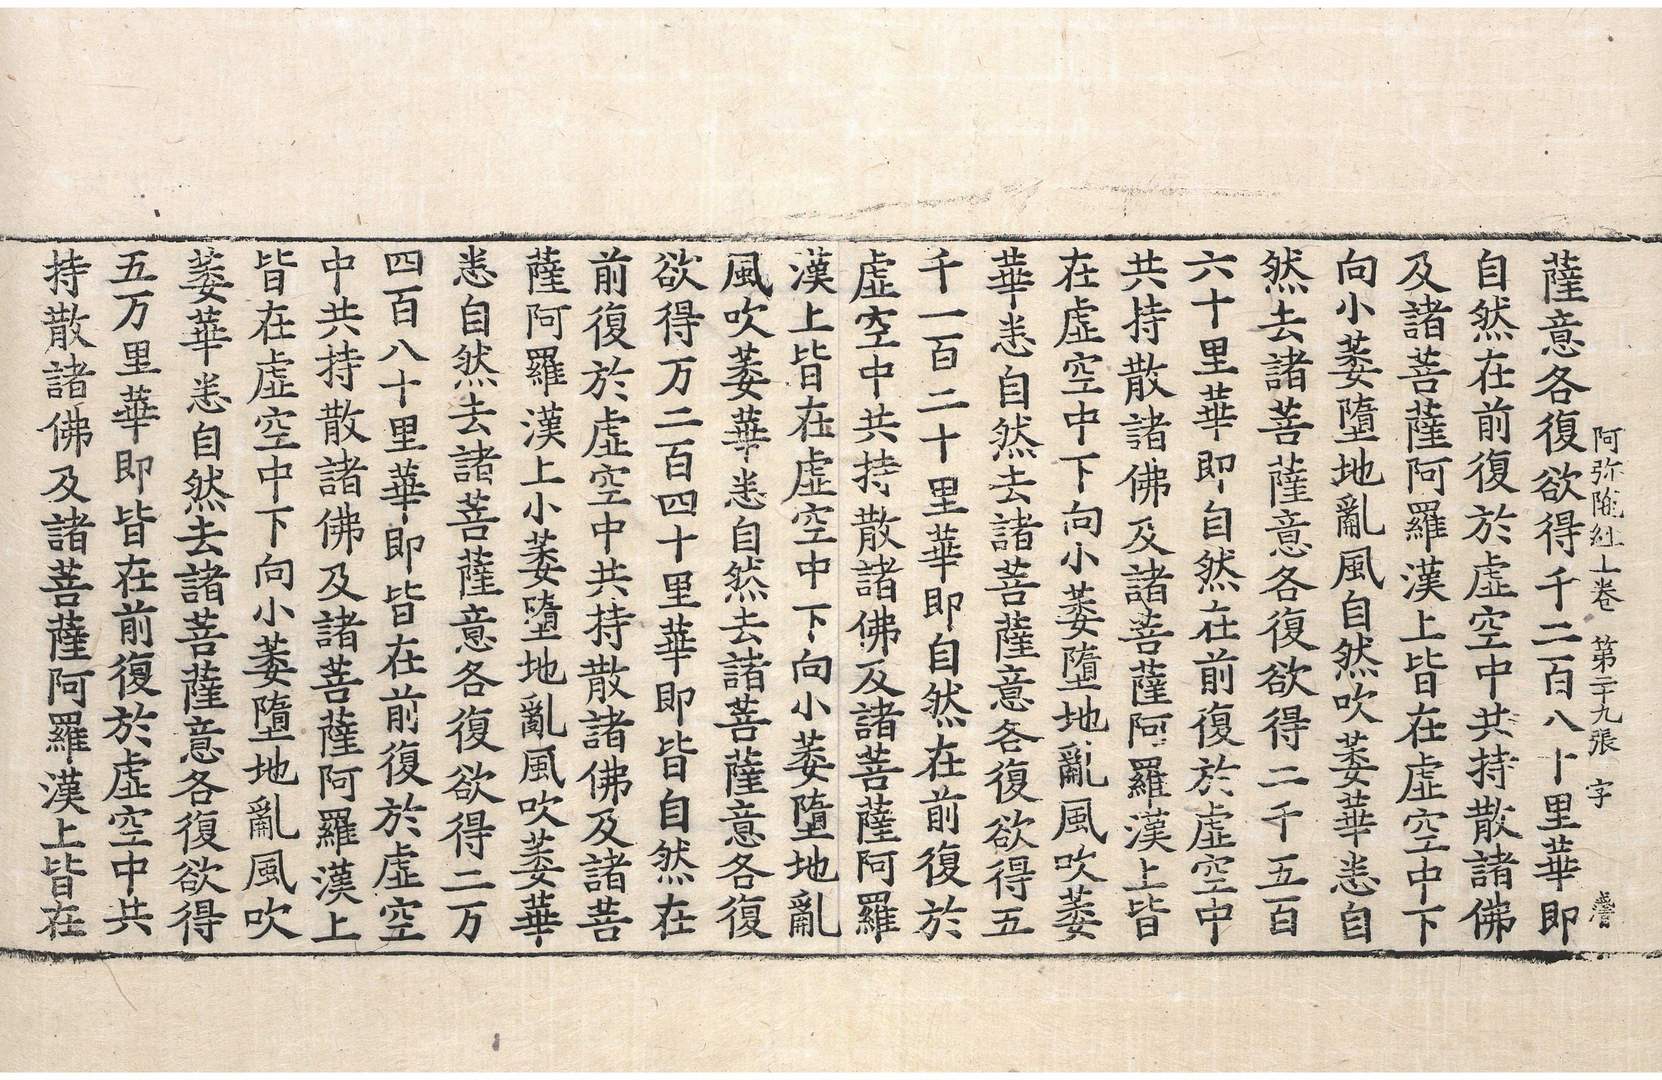 阿弥陁経上卷 第二十九張 字
薩意各復欲得千二百八十里華即
自然在前復於虛空中共持散諸佛
及諸菩薩阿羅漢上皆在虛空中下
向小萎墮地亂風自然吹萎華悉自
然去諸菩薩意各復欲得二千五百
六十里華即自然在前復於虛空中
共持散諸佛及諸菩薩阿羅漢上皆
在虛空中下向小萎墮地亂風吹萎
華悉自然去諸菩薩意各復欲得五
千一百二十里華即自然在前復於
虛空中共持散諸佛及諸菩薩阿羅
漢上皆在虛空中下向小萎墮地亂
風吹萎華悉自然去諸菩薩意各復
欲得万二百四十里華即皆自然在
前復於虛空中共持散諸佛及諸菩
薩阿羅漢上小萎墮地亂風吹萎華
悉自然去諸菩薩意各復欲得二万
四百八十里華即皆在前復於虛空
中共持散諸佛及諸菩薩阿羅漢上
皆在虛空中下向小萎墮地亂風吹
萎華悉自然去諸菩薩意各復欲得
五万里華即皆在前復於虛空中共
持散諸佛及諸菩薩阿羅漢上皆在